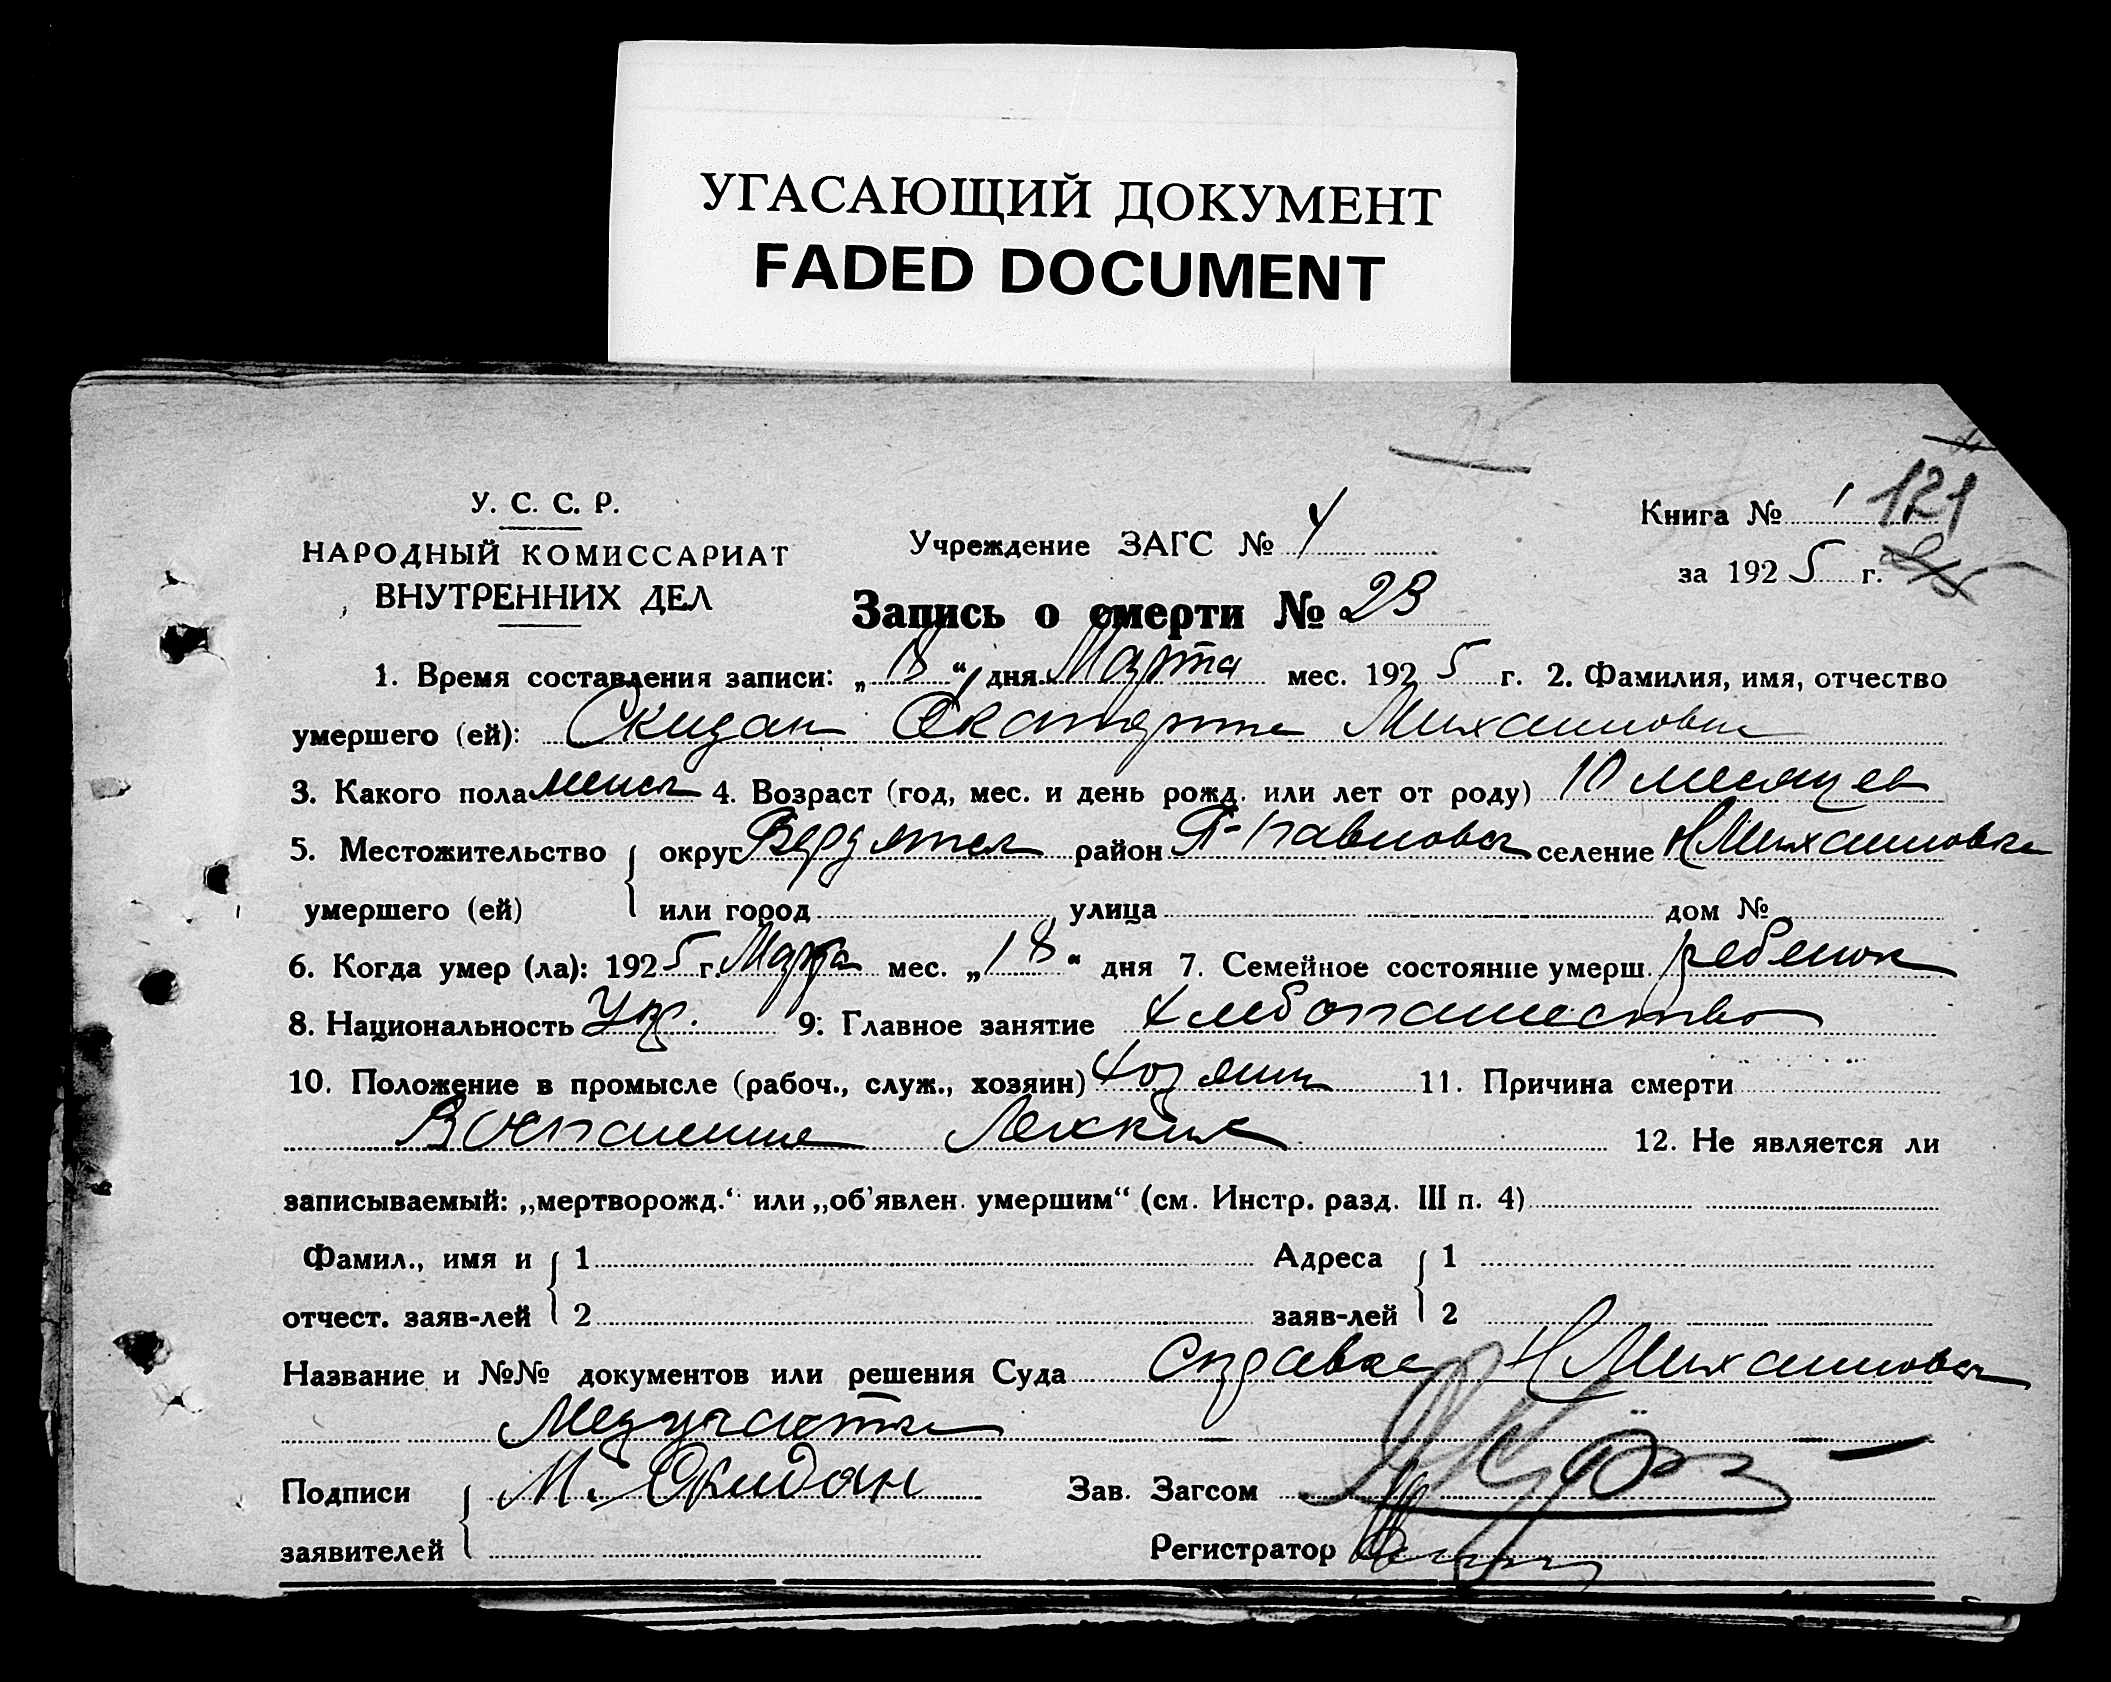 УГАСАЮЩИЙ ДОКУМЕНТ
FADED DOCUMENT
У. С. С. Р.
НАРОДНЫЙ КОМИССАРИАТ
ВНУТРЕННИХ ДЕЛ
Учреждение ЗАГС № 4
Запись о смерти № 23
Книга № 1 121
за 1925 г.
1. Время составления записи: „18“ дня Марта мес. 1925 г. 2. Фамилия, имя, отчество
умершего (ей): Скидан Екатерина Михайловна
3. Какого пола женск 4. Возраст (год, мес. и день рожд. или лет от роду) 10 месяцев
5. Местожительство { округ район П-Павловск селение Н Михайловка
умершего (ей) или город улица дом №
6. Когда умер (ла): 1925 г. Марта мес. „18“ дня 7. Семейное состояние умерш. ребенок
8. Национальность Укр. 9. Главное занятие хлебопашество
10. Положение в промысле (рабоч., служ., хозяин) хозяин 11. Причина смерти
Воспаление Легких 12. Не является ли
записываемый: „мертворожд.“ или „об'явлен. умершим“ (см. Инстр. разд. III п. 4)
Фамил., имя и { 1 Адреса { 1
отчест. заяв-лей 2 заяв-лей 2
Название и №№ документов или решения Суда Справка Н Михайловск
Медучастка
Подписи { М. Скидан Зав. Загсом
заявителей Регистратор